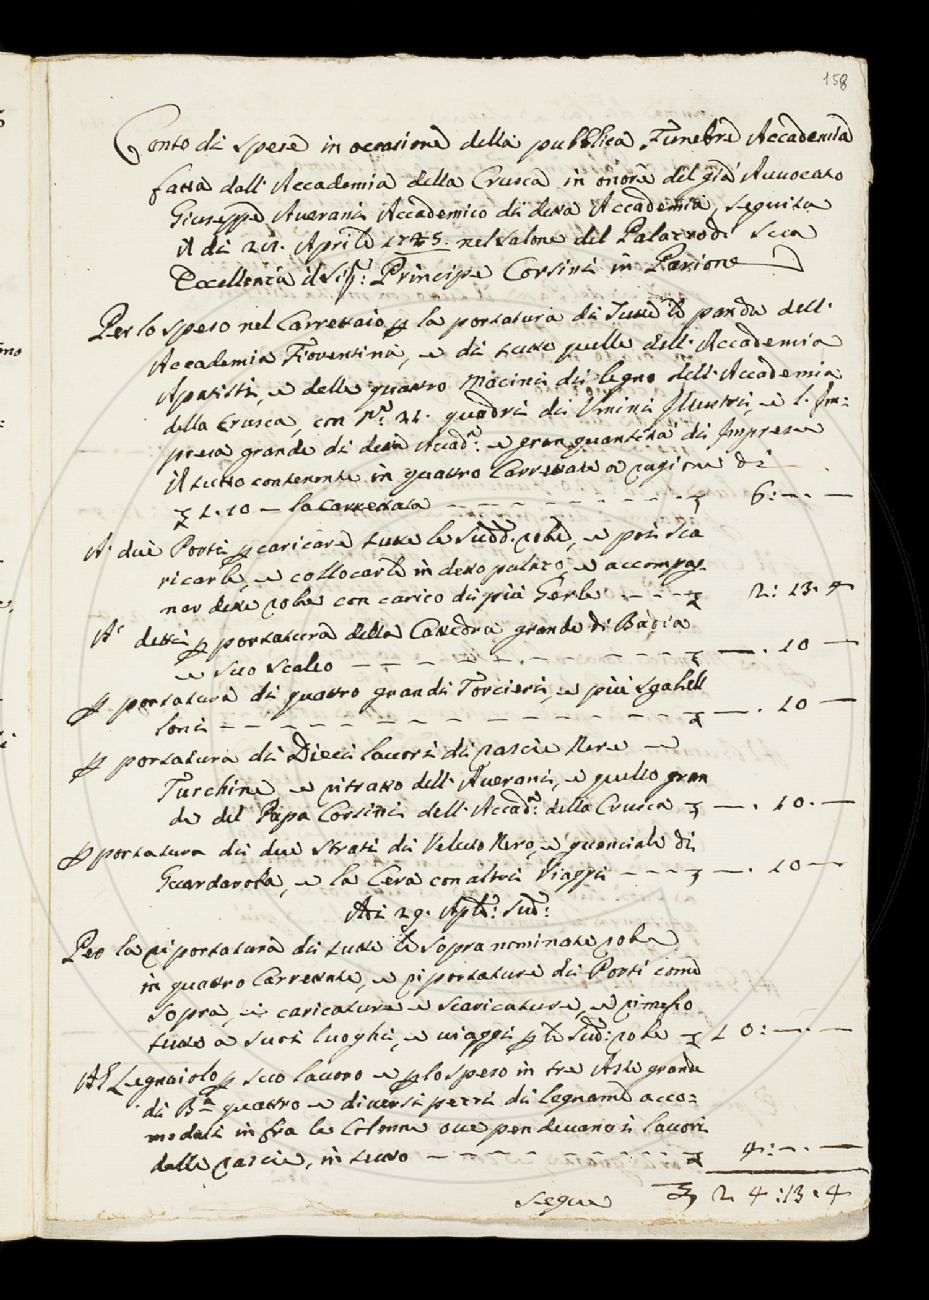 158
Conto di spese in occasione della pubblica Funebre Accademia
fatta dall'Accademia della Crusca in onore del già Auuocato
Giuseppe Auerani Accademico di detta Accademia, seguita
il dì Aprile nel salone del Palazzo di Sua
Eccellenza il Sig.r: Principe Corsini in Parione
Per lo speso nel Carrettaio p la portatura di Tutte le panche dell'
Accademia Fiorentina, e di tutte quelle dell'Accademia
Apatisti, e delle quattro Macine di legno dell'Accademia
della Crusca, con N.o 21. quadri di Vmini Jllustri, e l'Jm=
presa grande di detta Accad.a: e gran quantità di Jmprese
il tutto contenente in quattro Carrettate a ragione di
1.10 — la Carrettata — — — 6: —. —
A' due Porti p caricare tutte le sudd.e robe, e poi sca
ricarle, e collocarle in detto palazzo, e accompag-
nar dette robe con carico di più Gerle — — — 2: 13. 4
A' detti p portatura della Cattedra grande di Badia
e suo scaleo — — — —. 10 —
p portatura di quattro grandi Torcieri, e più sgabell
loni — — — —. 10 —
p portatura di Dieci lauori di rascie Nere e
Turchine e ritratto dell'Auerani, e quello gran
de del Papa Corsini dell'Accad.a: della Crusca —. 10. —
p portatura di due strati di Veluto Nero, e guanciale di
Guardaroba, e la Cera con altri Viaggi — — — —. 10 —
Adì 29. Aple: sud:
Per la riportatura di tutte le sopranominate robe
in quattro Carrettate, e riportature di Porti come
sopra, e caricature e scaricature, e rimesso
tutto a suoi luoghi, e uiaggi p le sud: robe 10: —. —
Al Legnaiolo p suo lauoro e p lo speso in tre Aste grande
di B.a quattro e diuersi pezzi di legname acco=
modati in fra le Colonne oue pendeuano i lauori
delle rascie, in tutto — — — 4: —. —
segue 24: 13. 4